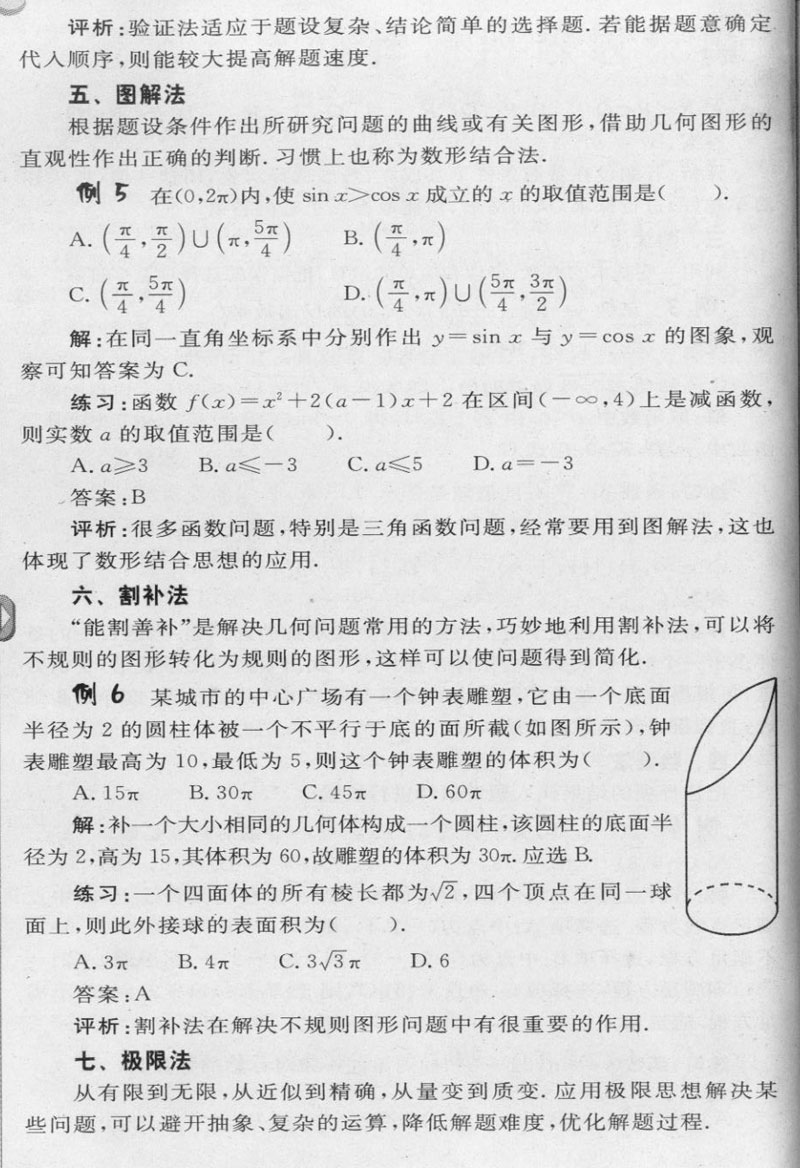 评析:验证法适应于题设复杂、结论简单的选择题.若能据题意确定
代入顺序,则能较大提高解题速度.
五、图解法
根据题设条件作出所研究问题的曲线或有关图形,借助几何图形的
直观性作出正确的判断.习惯上也称为数形结合法.
例5 在(0,2π)内,使 sin x>cos x 成立的 x 的取值范围是(  ).
A. (π/4,π/2)∪(π,5π/4) B. (π/4,π)
C. (π/4,5π/4) D. (π/4,π)∪(5π/4,3π/2)
解:在同一直角坐标系中分别作出 y=sin x 与 y=cos x 的图象,观
察可知答案为 C.
练习:函数 f(x)=x²+2(a-1)x+2 在区间(-∞,4)上是减函数,
则实数 a 的取值范围是(  ).
A. a≥3 B. a≤-3 C. a≤5 D. a=-3
答案:B
评析:很多函数问题,特别是三角函数问题,经常要用到图解法,这也
体现了数形结合思想的应用.
六、割补法
“能割善补”是解决几何问题常用的方法,巧妙地利用割补法,可以将
不规则的图形转化为规则的图形,这样可以使问题得到简化.
例6 某城市的中心广场有一个钟表雕塑,它由一个底面
半径为 2 的圆柱体被一个不平行于底的面所截(如图所示),钟
表雕塑最高为 10,最低为 5,则这个钟表雕塑的体积为(  ).
A. 15π B. 30π C. 45π D. 60π
解:补一个大小相同的几何体构成一个圆柱,该圆柱的底面半
径为 2,高为 15,其体积为 60,故雕塑的体积为 30π.应选 B.
练习:一个四面体的所有棱长都为√2,四个顶点在同一球
面上,则此外接球的表面积为(  ).
A. 3π B. 4π C. 3√3π D. 6
答案:A
评析:割补法在解决不规则图形问题中有很重要的作用.
七、极限法
从有限到无限,从近似到精确,从量变到质变.应用极限思想解决某
些问题,可以避开抽象、复杂的运算,降低解题难度,优化解题过程.